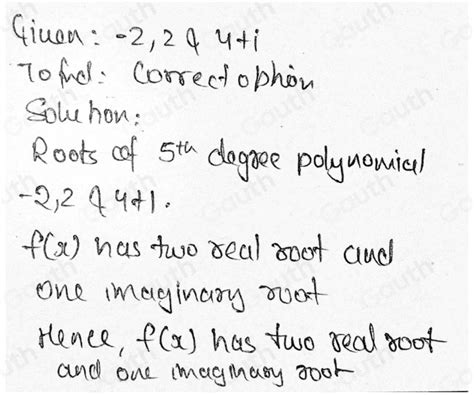 Given: -2, 2 & 4+i
To find: Correct option
Solution:
Roots of 5th degree polynomial
-2, 2 & 4+i.
f(x) has two real root and
one imaginary root
Hence, f(x) has two real root
and one imaginary root